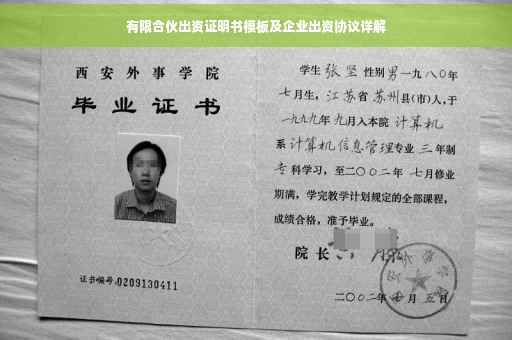 有限合伙出资证明书模板及企业出资协议详解
西安外事学院
毕业证书
证书编号:0209130411
学生张坚性别男一九八〇年
七月生,江苏省苏州县(市)人,于
一九九九年九月入本院计算机
系计算机信息管理专业三年制
专科学习,至二〇〇二年七月修业
期满,学完教学计划规定的全部课程,
成绩合格,准予毕业。
院长
二〇〇二年 月五日